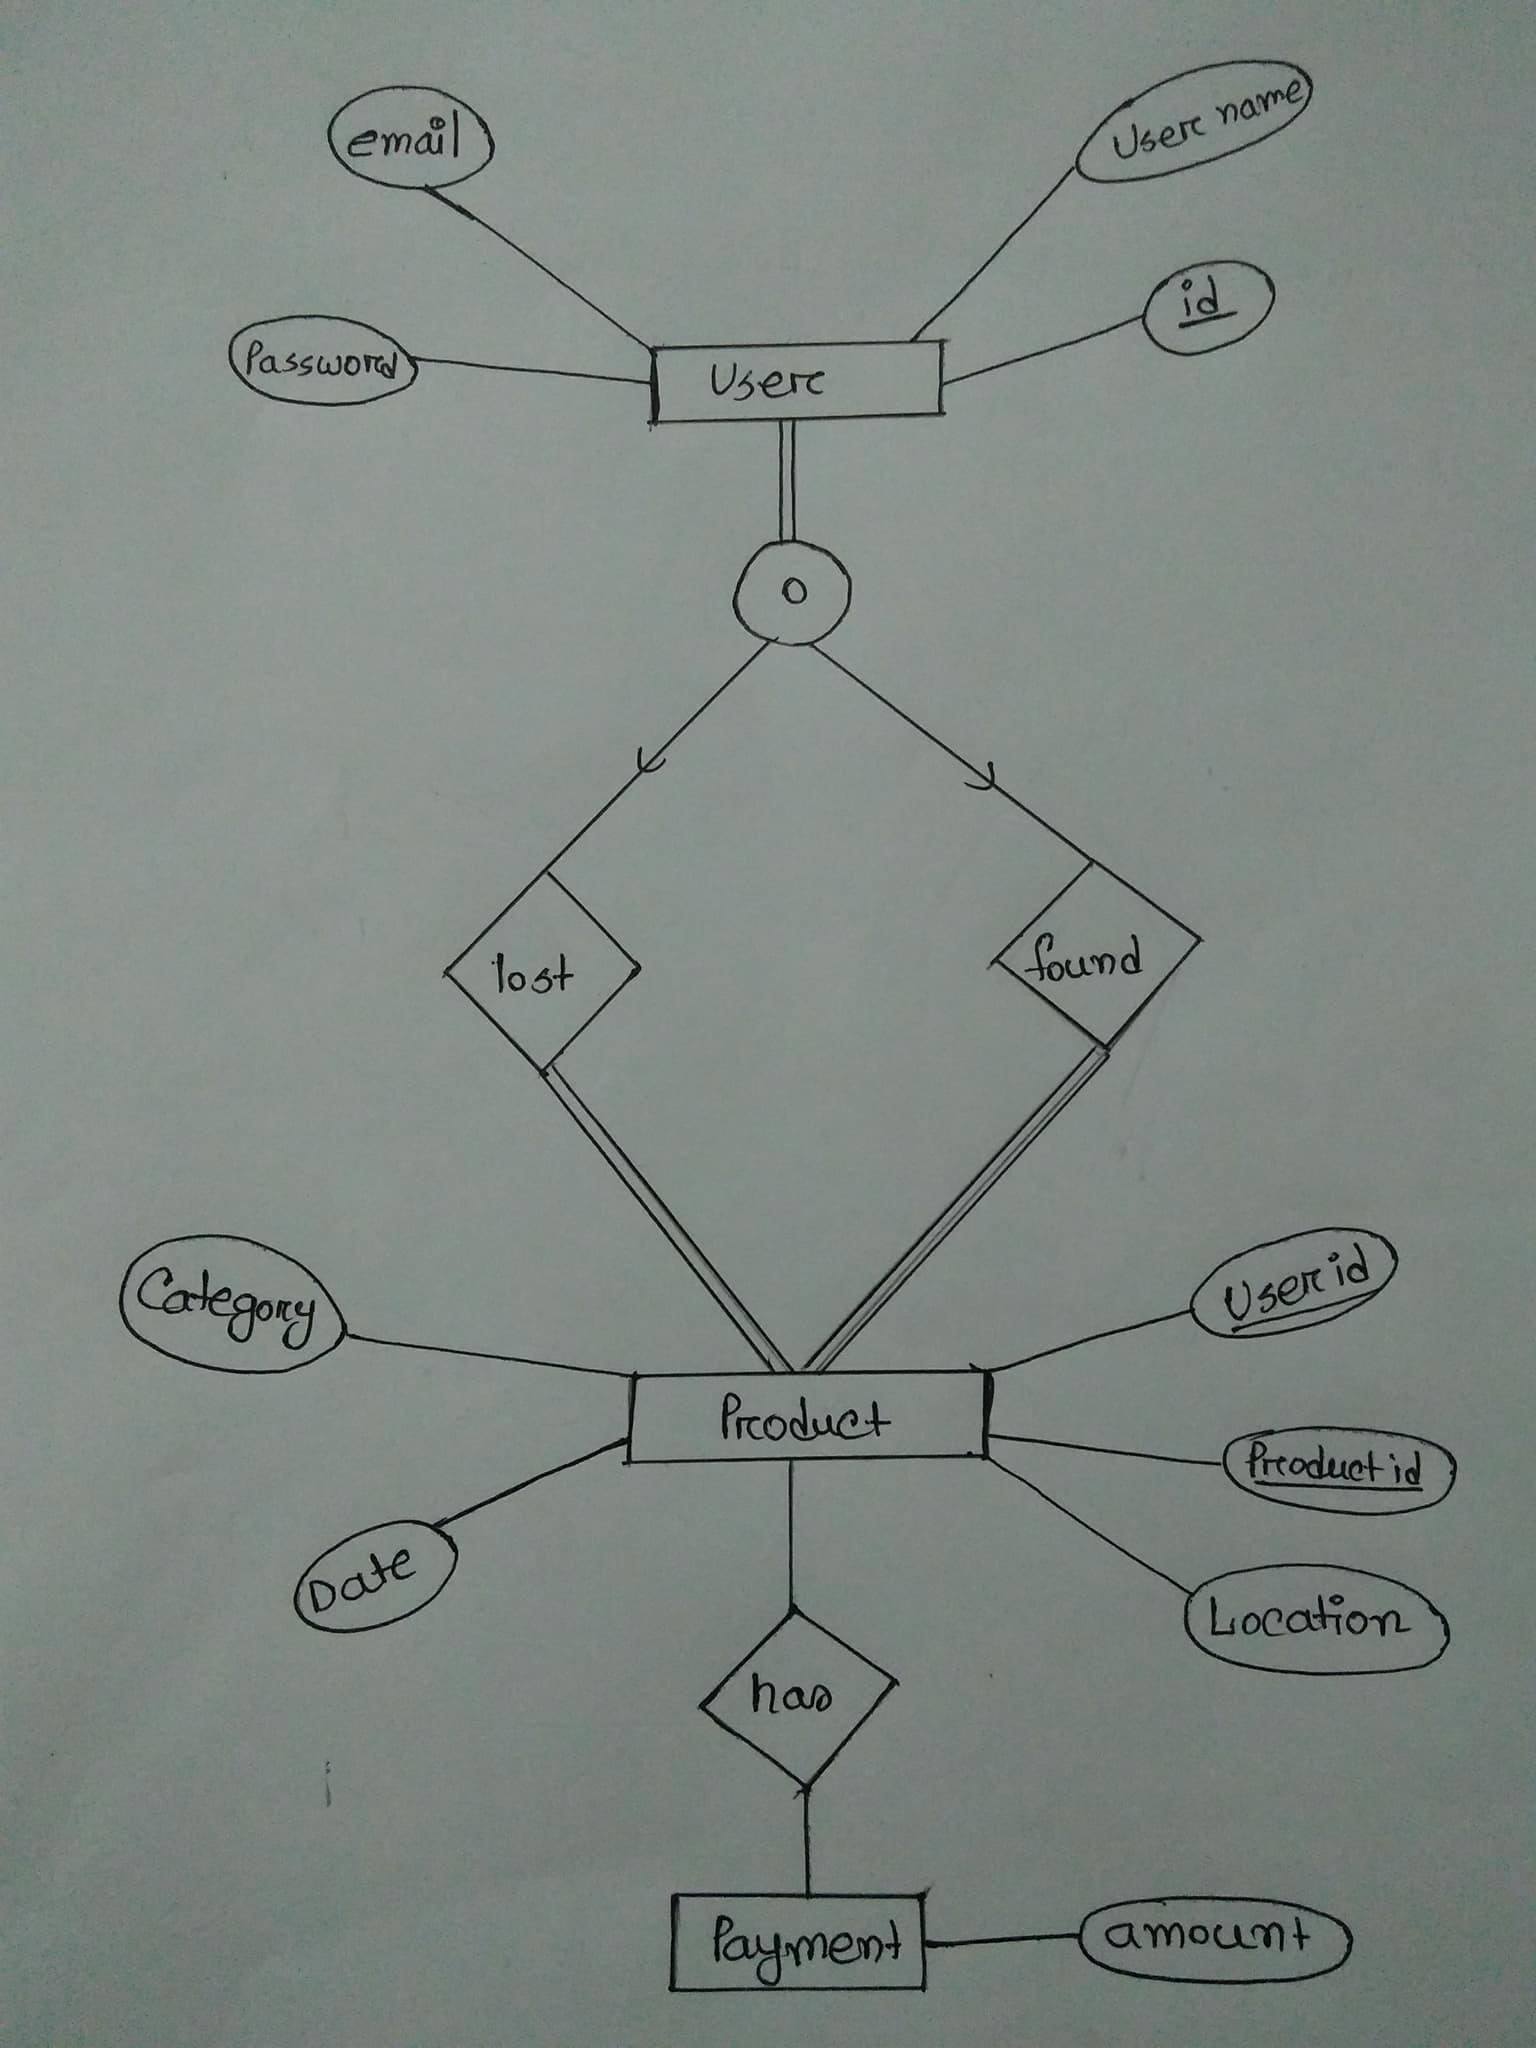 email
User name
Password
id
User
O
lost
found
Category
User id
Product
Product id
Date
Location
has
Payment
amount